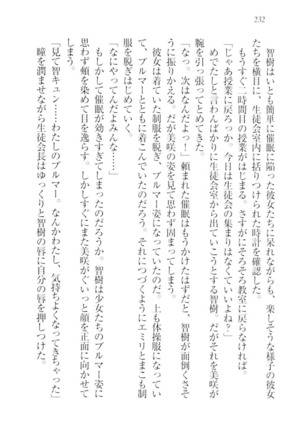 232
智樹はいとも簡単に催眠に陥った彼女たちに呆れながらも、楽しそうな様子の彼女
たちを横目に、生徒会室内に括りつけられた時計を確認した。
もうすぐ二時間目の授業がはじまる。さすがにそろそろ教室に戻らなければ。
「じゃあ授業に戻ろっか。今日は生徒会の集まりはなくていいよね?」
めでたしと言わんばかりに生徒会室から出ていこうとする智樹。だがそれを美咲が
腕を引っ張ってとめてきた。
「なっ。次はなんだよっ!」頼まれた催眠はもうかけたはずだと、智樹が面倒くさそ
うに振りかえる。だが美咲の姿を見て思わず固まってしまう。
彼女は着ていた制服を脱ぎ、ブルマー姿になっていたのだ。上も体操服になってい
ることから、もともと下に着こんでいたのだろう。それにつづくようにエミリとまこも制
服を脱ぎはじめていく。
「なにやってんだよみんな……」
もしかして催眠が効きすぎてしまったのだろうか。智樹は少女たちのブルマー姿に
思わず頬を染めて目を逸らす。しかしすぐにまた美咲がぐいっと顔を正面に向かせて
「見て智キュン……わたしのブルマー。なんかわたし、気持ちよくなってきちゃった」
瞳を潤ませながら生徒会長はゆっくりと智樹の唇に自分の唇を押しつけた。